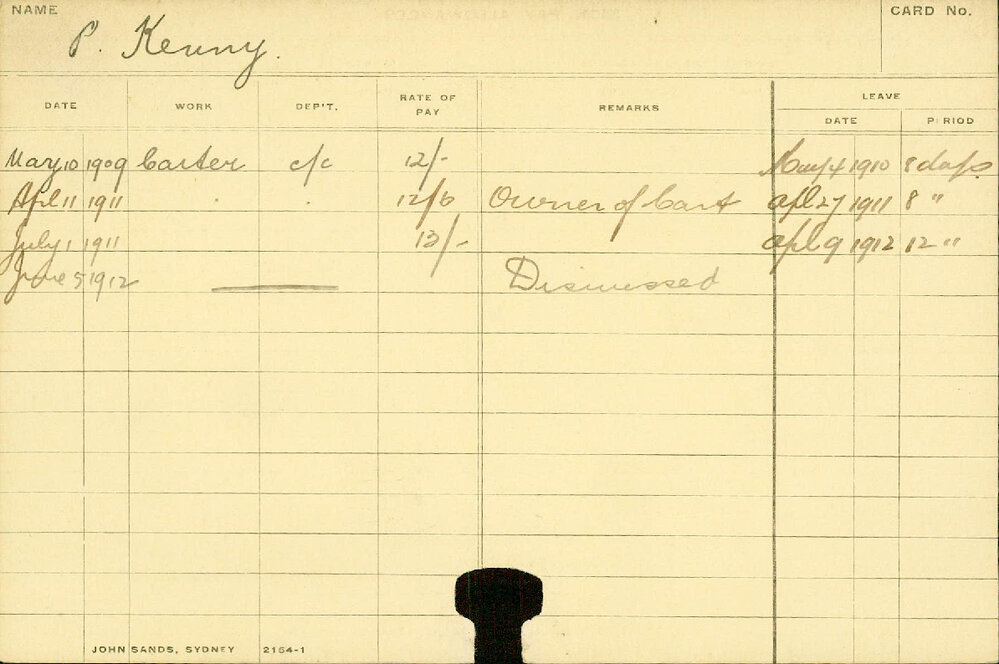 NAME CARD No.
P. Kenny.
DATE WORK DEP'T. RATE OF PAY REMARKS LEAVE
DATE PERIOD
May 10 1909 Carter c/c 12/- May 4 1910 8 days
Apl 11 1911 . . 12/6 Owner of Cart Apl 27 1911 8 "
July 1 1911 13/- Apl 9 1912 12 "
June 5 1912 Dismissed
JOHN SANDS, SYDNEY 2164-1